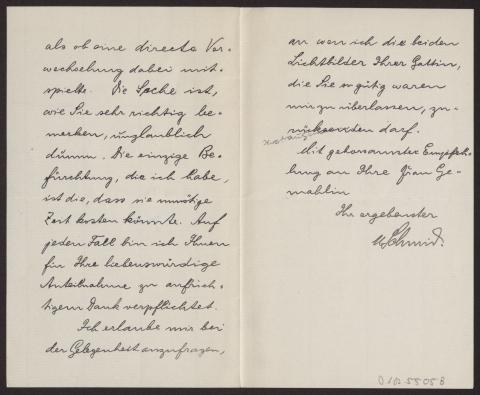 als ob eine directe Ver-
wechselung dabei mit-
spielte. Die Sache ist,
wie Sie sehr richtig be-
merken, unglaublich
dumm. Die einzige Be-
fürchtung, die ich habe,
ist die, dass sie unnötige
Zeit kosten könnte. Auf
jeden Fall bin ich Ihnen
für Ihre liebenswürdige
Anteilnahme zu aufrich-
tigem Dank verpflichtet.
Ich erlaube mir bei
der Gelegenheit anzufragen,
an wen ich die beiden
Lichtbilder Ihrer Gattin,
die Sie so gütig waren
mir zu überlassen, zu-
rücksenden darf.
Mit gehorsamster Empfeh-
lung an Ihre Frau Ge-
mahlin
Ihr ergebenster
WSchmid.